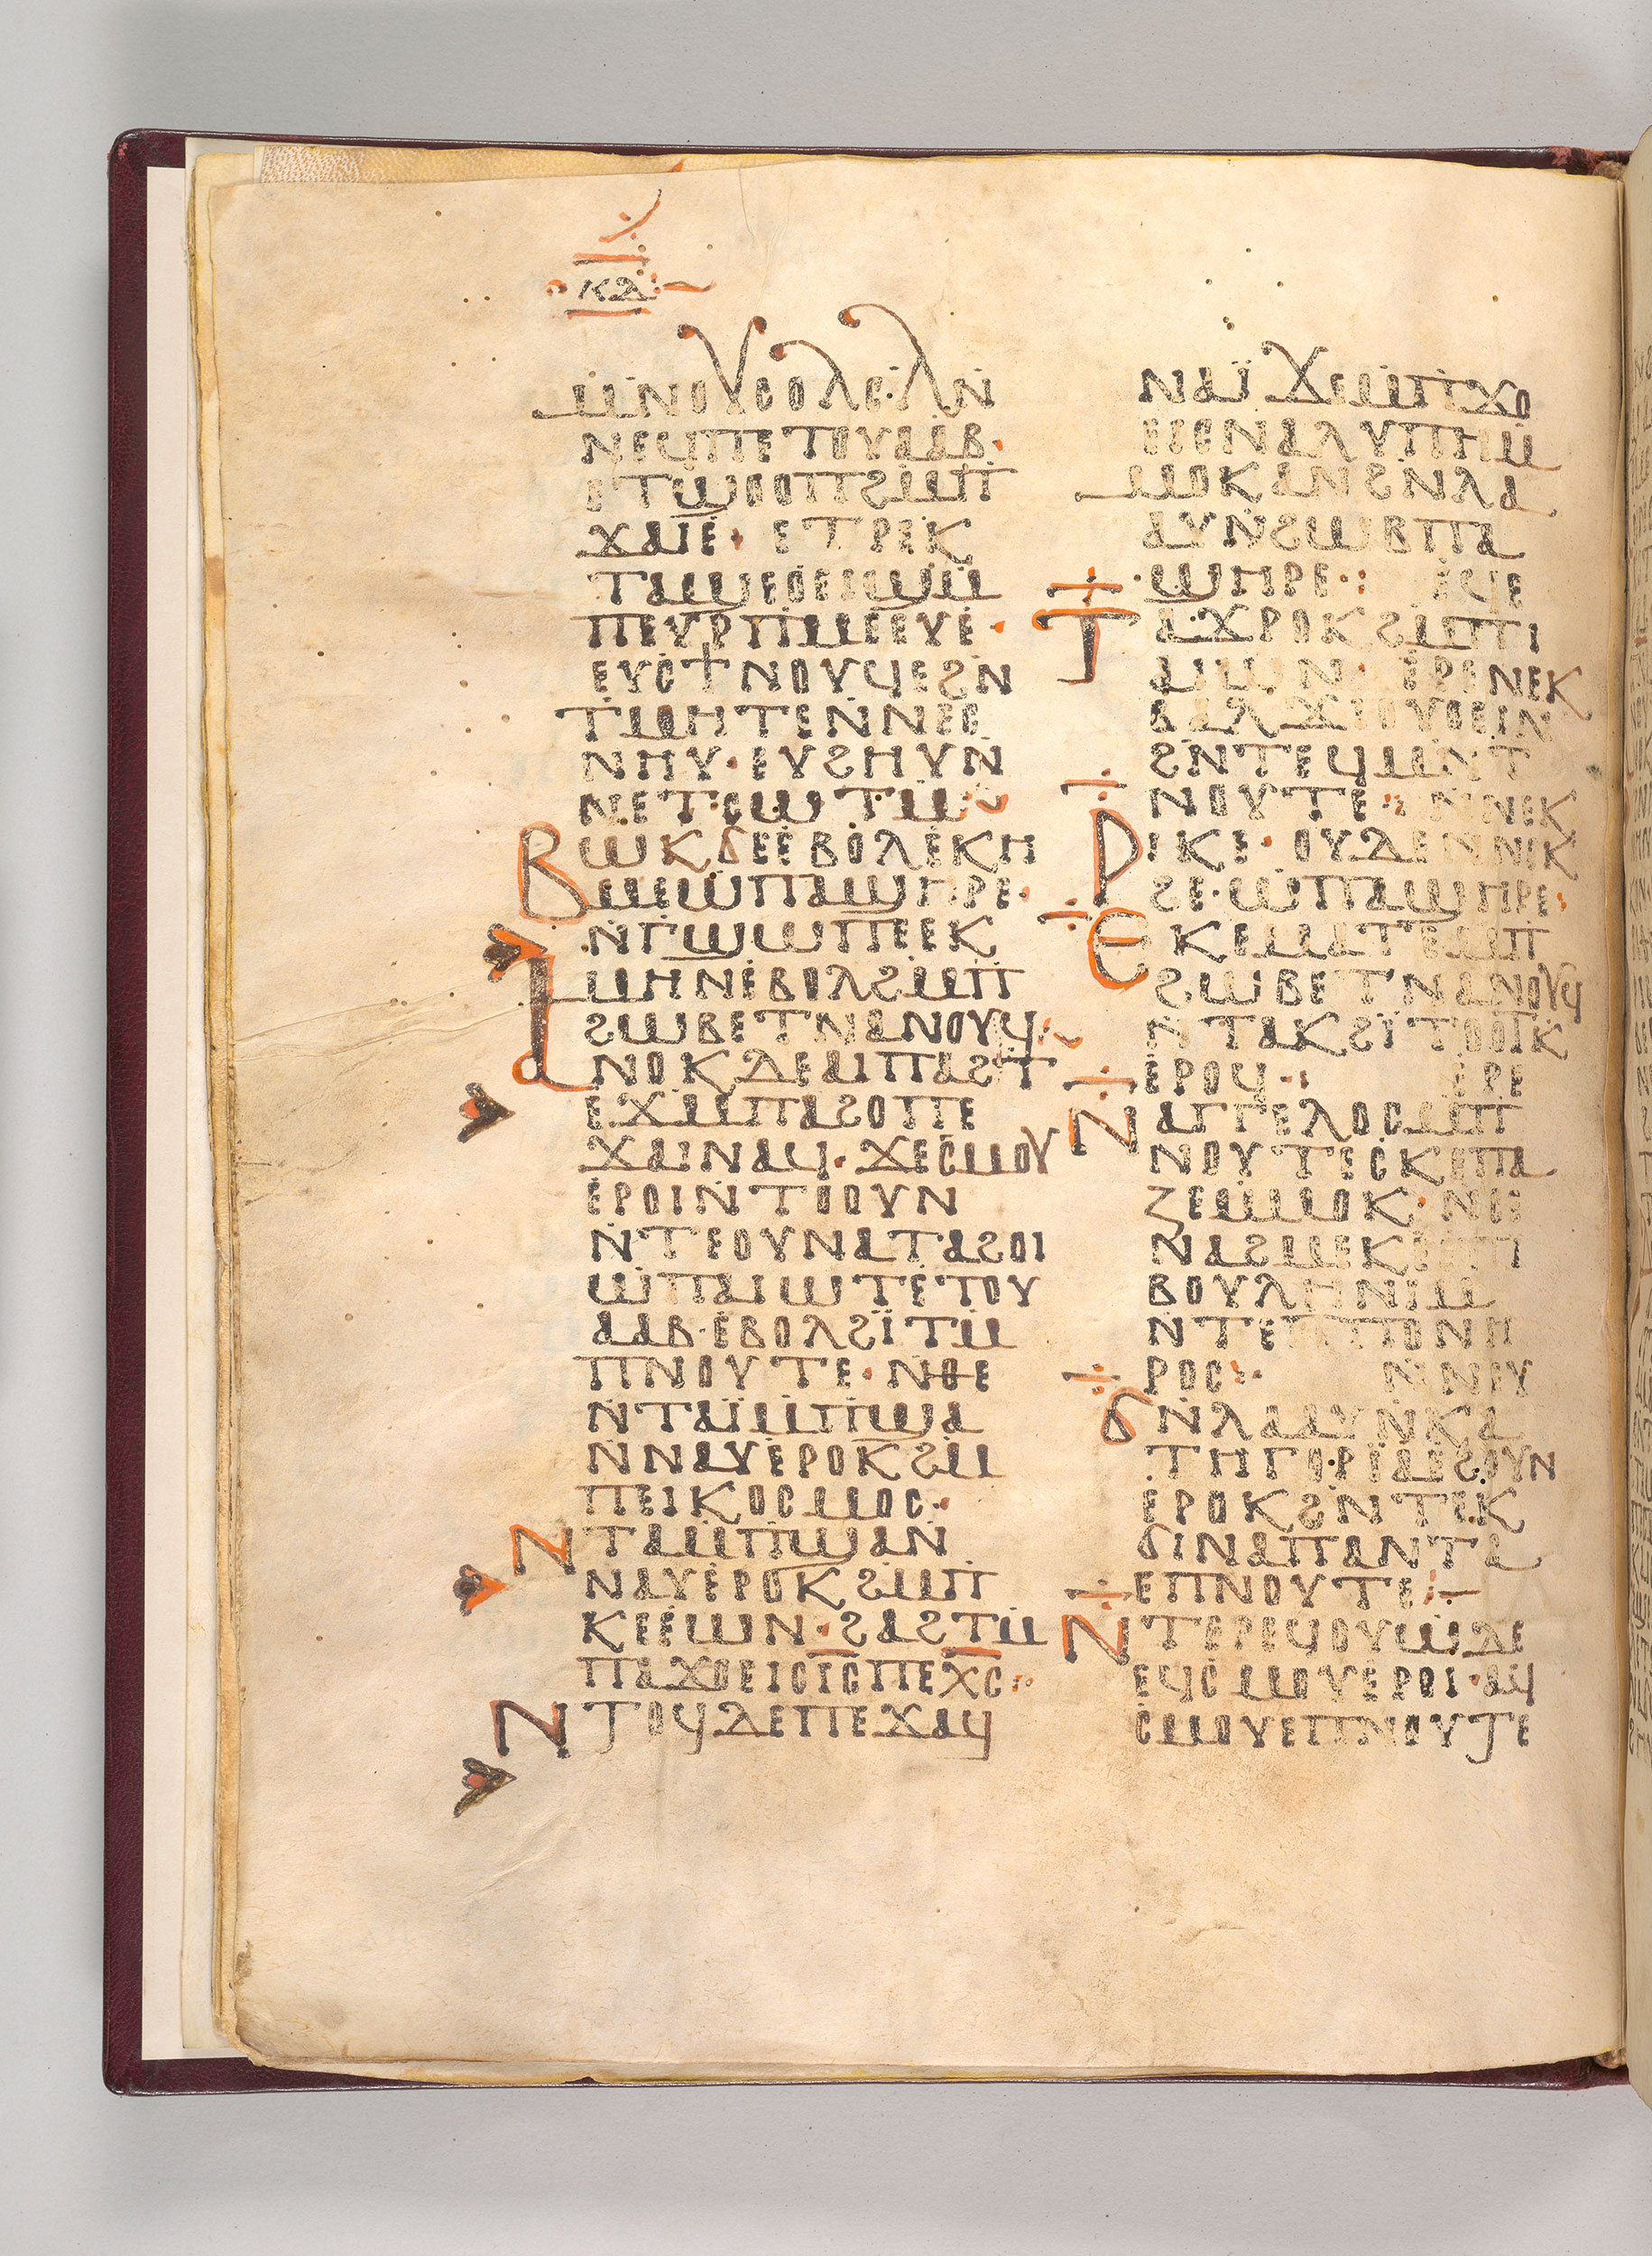 ⲕⲇ
ⲙⲛⲟⲩⲥⲟⲗⲥⲗⲛ
ⲛⲉϥⲡⲉⲧⲟⲩⲁⲁⲃ·
ⲉⲧϣⲟⲟⲡϩⲙⲡ
ϫⲁⲓⲉ· ⲉⲧⲣⲉⲕ
ⲧⲁϣⲉⲟⲉⲓϣⲙ
ⲡⲉⲩⲣⲡⲙⲉⲉⲩⲉ·
ⲉⲩⲥϯⲛⲟⲩϥⲉϩⲛ
ⲧⲙⲏⲧⲉⲛⲛⲉⲥ
ⲛⲏⲩ· ⲉⲩϩⲏⲩⲛ
ⲛⲉⲧⲥⲱⲧⲙ
ⲃⲱⲕϭⲉⲉⲃⲟⲗⲉⲕⲏ
ⲙⲉⲱⲡⲁϣⲏⲣⲉ·
ⲛⲅϣⲱⲡⲉⲉⲕ
ⲙⲏⲛⲉⲃⲟⲗϩⲙⲡ
ϩⲱⲃⲉⲧⲛⲁⲛⲟⲩϥ
ⲁⲛⲟⲕⲇⲉⲁⲓⲡⲁϩⲧ
ⲉϫⲙⲡⲁϩⲟⲡⲉ
ϫⲁⲓⲛⲁϥ· ϫⲉⲥⲙⲟⲩ
ⲉⲣⲟⲓⲛⲧⲟⲟⲩⲛ
ⲛⲧⲉⲟⲩⲛⲁⲧⲁϩⲟⲓ
ⲱⲡⲁⲓⲱⲧⲉⲧⲟⲩ
ⲁⲁⲃ·ⲉⲃⲟⲗϩⲓⲧⲙ
ⲡⲛⲟⲩⲧⲉ· ⲛⲑⲉ
ⲛⲧⲁⲓⲙⲡϣⲁ
ⲛⲛⲁⲩⲉⲣⲟⲕϩⲙ
ⲡⲉⲓⲕⲟⲥⲙⲟⲥ·
ⲛⲧⲁⲙⲡϣⲁⲛ
ⲛⲁⲩⲉⲣⲟⲕϩⲙⲡ
ⲕⲉⲉⲱⲛ· ϩⲁϩⲧⲙ
ⲡⲁϫⲟⲉⲓⲥⲓⲥⲡⲉⲭⲥ
ⲛⲧⲟϥⲇⲉⲡⲉϫⲁϥ
ⲛⲁⲓ ϫⲉⲙⲡϫⲟ
ⲉⲓⲥⲛⲁⲗⲩⲡⲏⲙ
ⲙⲟⲕⲁⲛϩⲛⲗⲁ
ⲁⲩⲛϩⲱⲃⲡⲁ
ϣⲏⲣⲉ· ⲉϥⲉ
ⲧⲁϫⲣⲟⲕϩⲙⲡⲓ
ⲁⲓⲱⲛ· ⲉⲣⲉⲛⲉⲕ
ⲃⲁⲗϫⲓⲟⲩⲟⲉⲓⲛ
ϩⲛⲧⲉϥⲙⲛⲧ
ⲛⲟⲩⲧⲉ· ⲛⲛⲉⲕ
ⲣⲓⲕⲉ· ⲟⲩⲇⲉⲛⲛⲉⲕ
ϩⲉ·ⲱⲡⲁϣⲏⲣⲉ
ⲉⲕⲉⲙⲁⲧⲉⲙⲡ
ϩⲱⲃⲉⲧⲛⲁⲛⲟⲩϥ
ⲛⲧⲁⲕϩⲓⲧⲟⲟⲧⲕ
ⲉⲣⲟϥ· ⲉⲣⲉ
ⲛⲁⲅⲅⲉⲗⲟⲥⲙⲡ
ⲛⲟⲩⲧⲉⲥⲕⲉⲡⲁ
ⲍⲉⲙⲙⲟⲕ· ⲛϥ
ⲛⲁϩⲙⲉⲕ ⲉⲡⲓ
ⲃⲟⲩⲗⲏⲛⲓⲙ
ⲛⲧⲉⲡⲡⲟⲛⲏ
ⲣⲟⲥ· ⲛⲛⲉⲩ
ϭⲛⲗⲁⲁⲩⲛⲕⲁ
ⲧⲏⲅⲟⲣⲓⲁⲉϩⲟⲩⲛ
ⲉⲣⲟⲕϩⲛⲧⲉⲕ
ϭⲓⲛⲁⲡⲁⲛⲧⲁ
ⲉⲡⲛⲟⲩⲧⲉ
ⲛⲧⲉⲣⲉϥⲟⲩⲱⲇⲉ
ⲉϥⲥⲙⲟⲩⲉⲣⲟⲓ·ⲁϥ
ⲥⲙⲟⲩⲉⲡⲛⲟⲩⲧⲉ